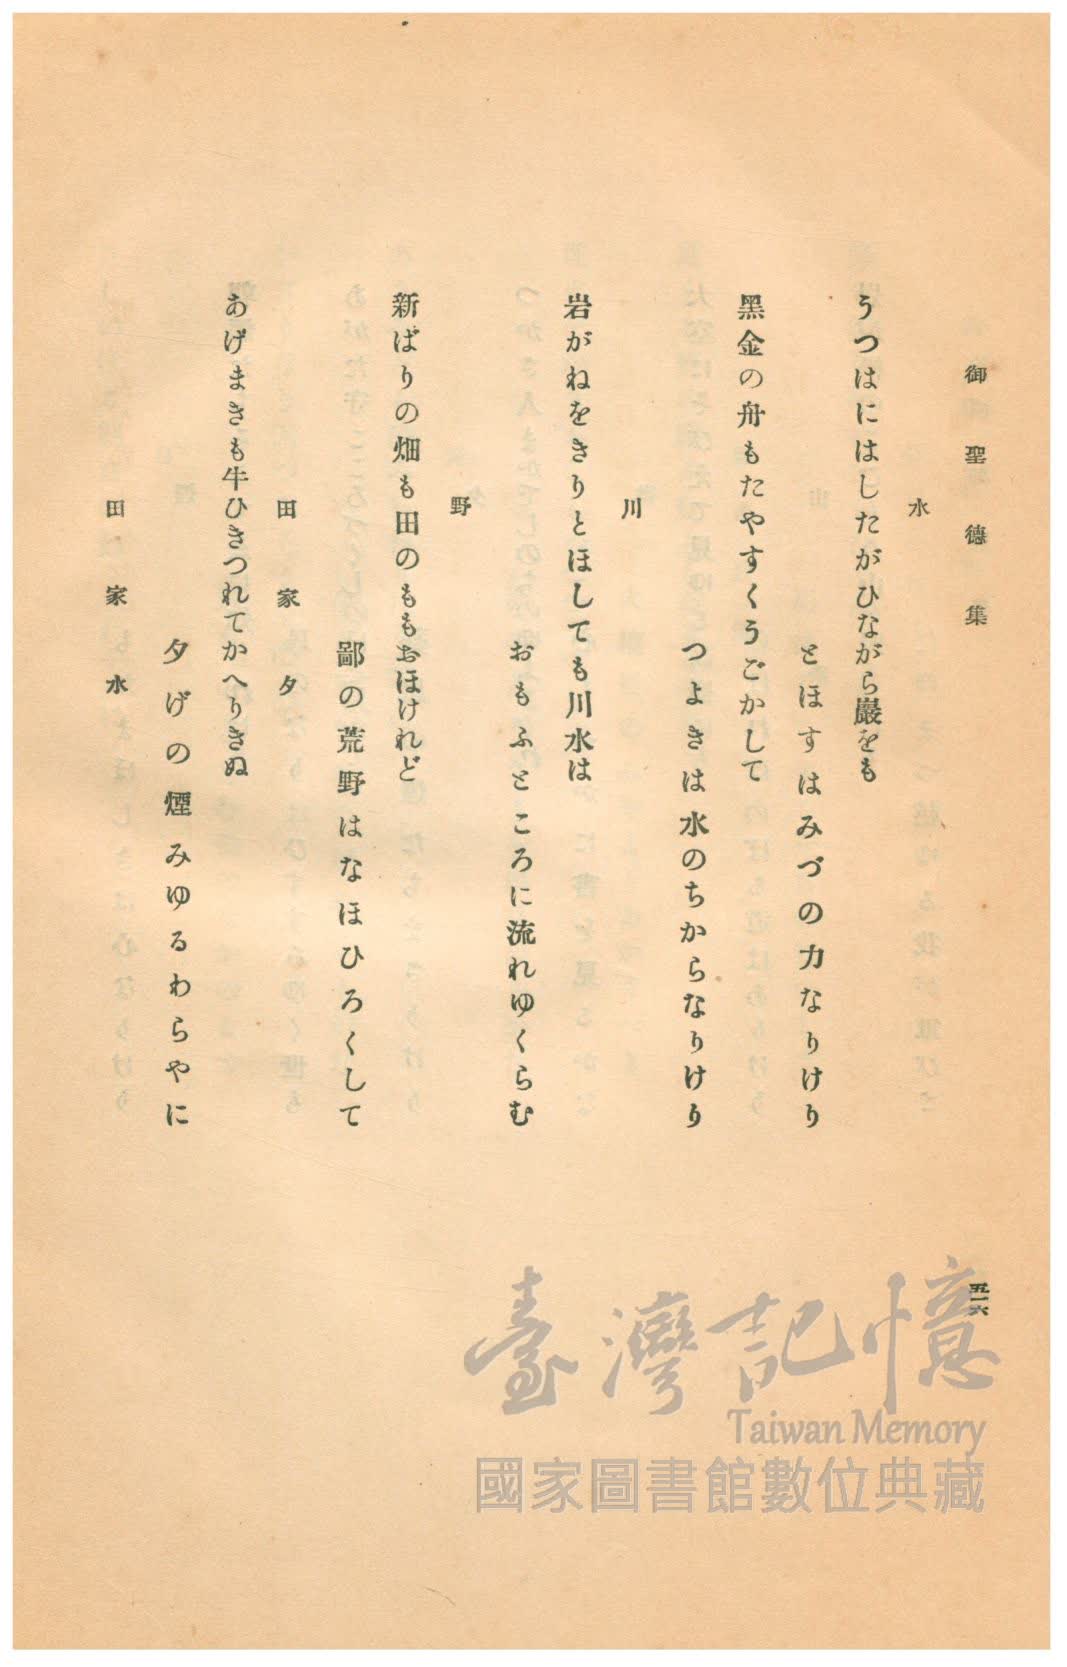 御聖德集
水
うつはにはしたがひながら巖をも
とほすはみづの力なりけり
黑金の舟もたやすくうごかして
つよきは水のちからなりけり
川
岩がねをきりとほしても川水は
おもふところに流れゆくらむ
野
新ばりの畑も田のももおほけれど
鄙の荒野はなほひろくして
田家夕
あげまきも牛ひきつれてかへりきぬ
夕げの煙みゆるわらやに
田家水
五一六
臺灣記憶
Taiwan Memory
國家圖書館數位典藏